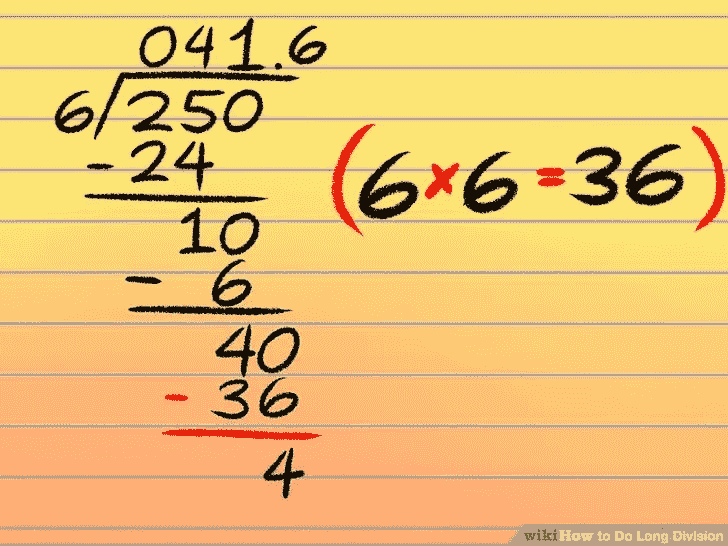 041.6
6/250
-24
10
- 6
40
- 36
4
(6×6=36)
wikiHow to Do Long Division